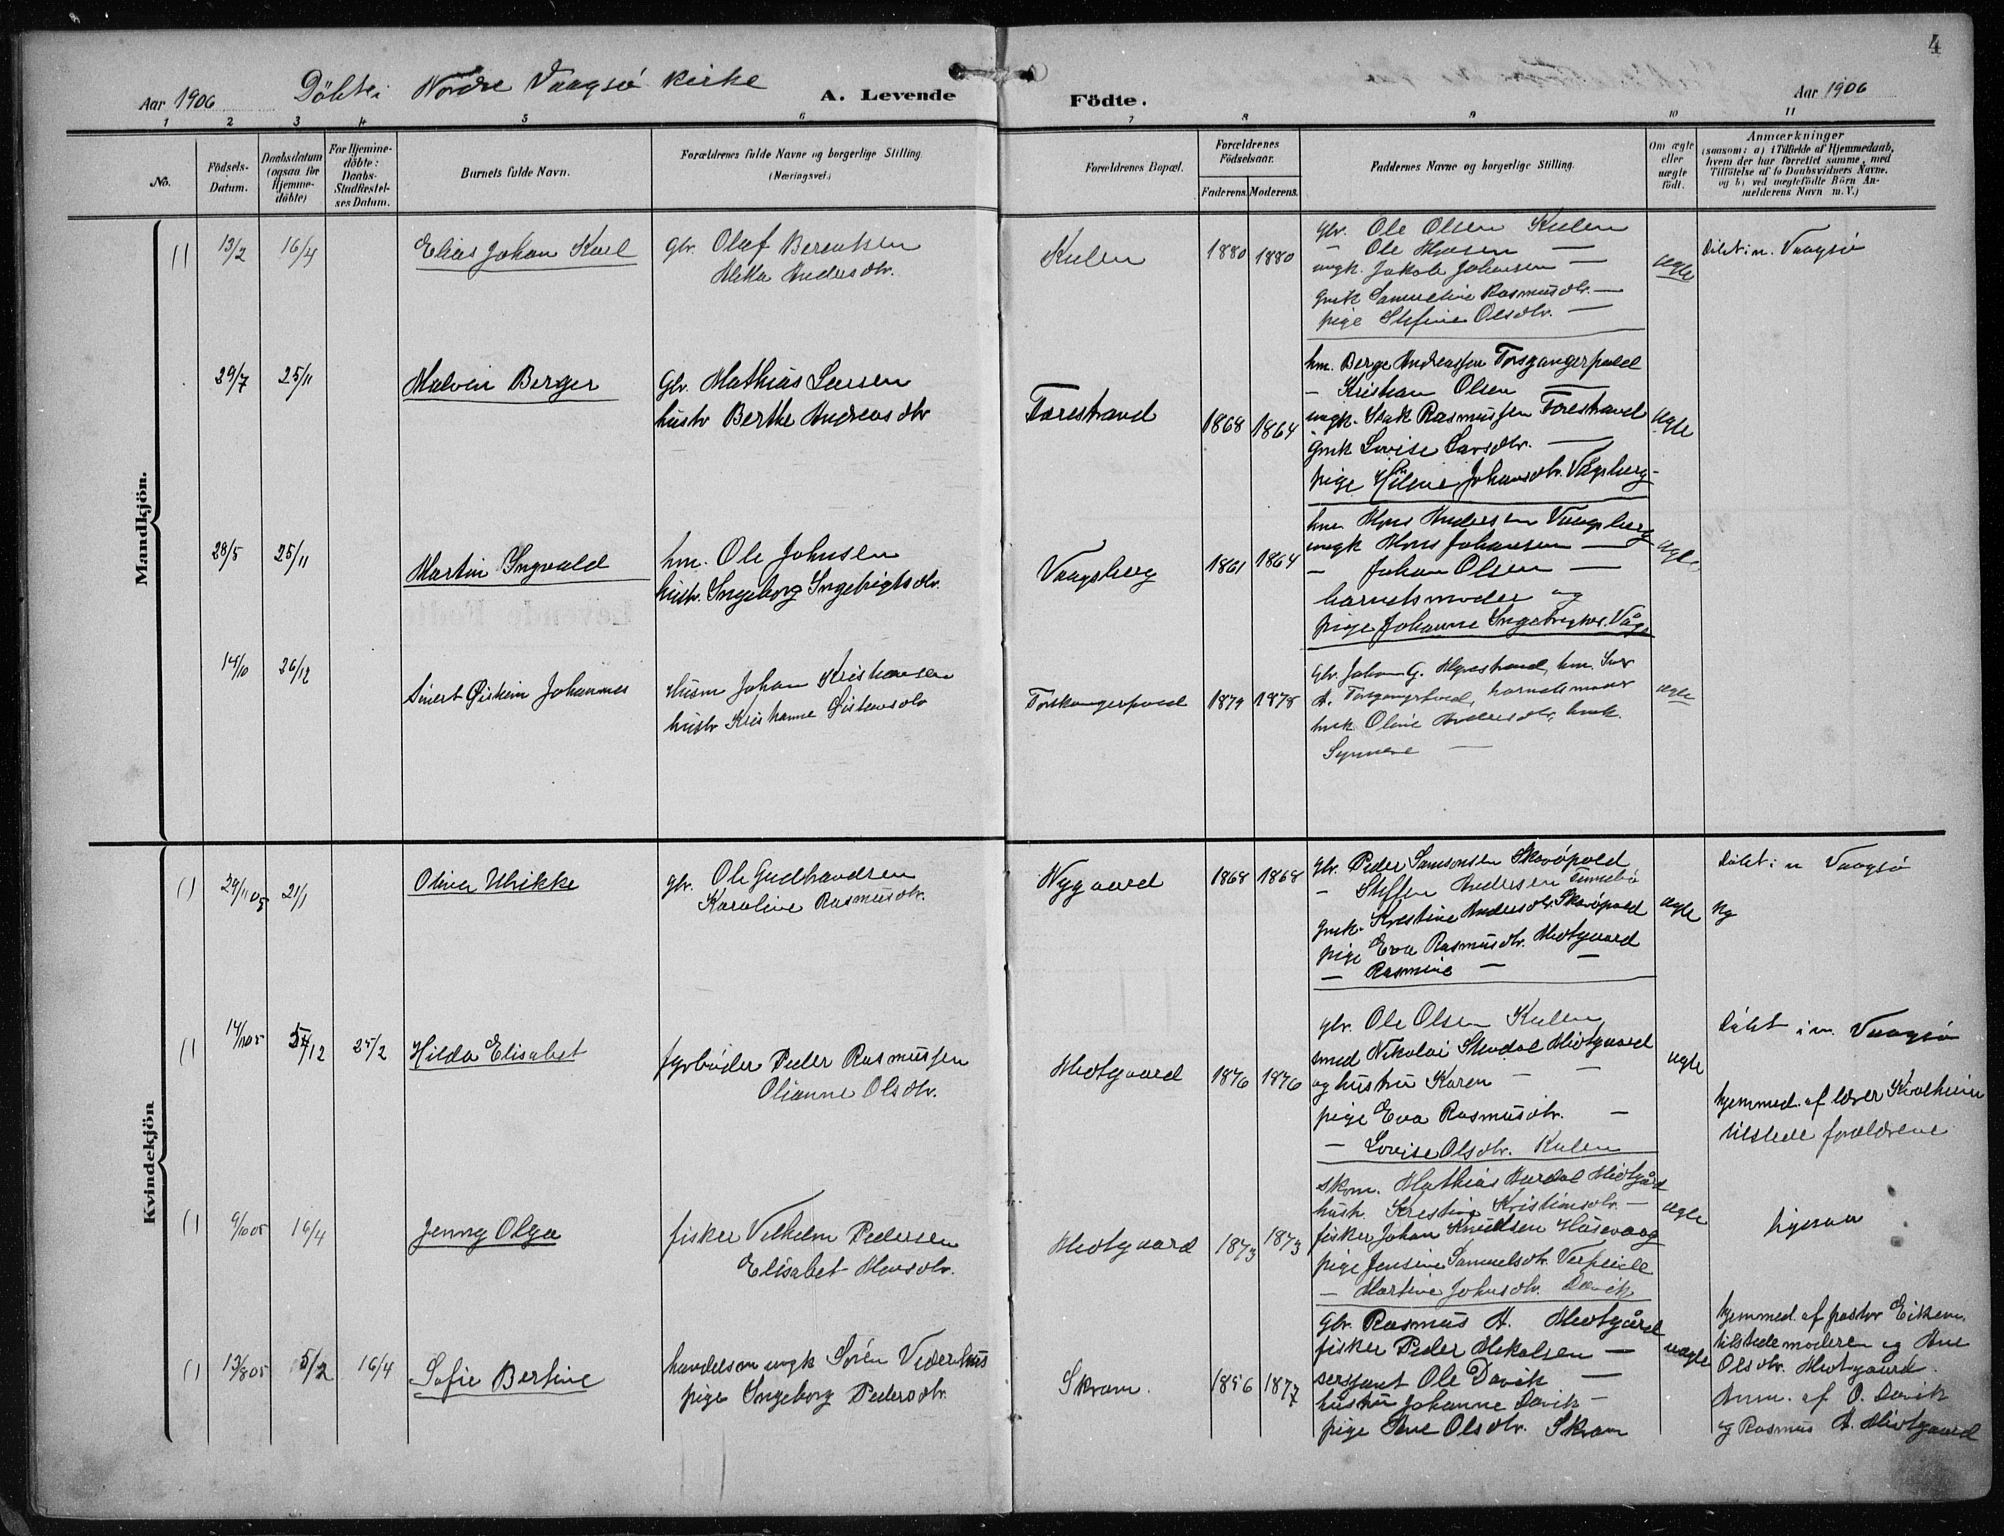 4
Aar 1906
Döbte i Nordre Vaagsö Kirke
A. Levende
Födte.
Aar 1906
1 2 3 4 5 6 7 8 9 10 11
No.
Födsels-
Datum.
Daabsdatum
(ogsaa for
Hjemme-
döbte)
For Hjemme-
döbte:
Daabs-
Stadfæstel-
ses Datum.
Barnets fulde Navn.
Forældrenes fulde Navne og borgerlige Stilling.
(Næringsvei.)
Forældrenes Bopæl.
Forældrenes
Födselsaar.
Faderens. Moderens.
Faddernes Navne og borgerlige Stilling.
Om ægte
eller
uægte
födt.
Anmærkninger
(saasom: a) i Tilfælde af Hjemmedaab,
hvem der har forrettet samme, med
Tilföielse af to Daabsvidners Navne,
og b) ved uægtefödte Börn An-
melderens Navn m. V.)
Mandkjön.
13/2 16/4 Elias Johan Karl
gbr. Olaf Berentsen
Andersdtr.
Kulen 1880 1880
gbr. Ole Olsen Kulen
— Ole Hansen —
ungk. Jakob Johansen —
gmk Samueline Rasmusdtr. —
pige Stefine Olsdtr. —
ægte
Döbt i n. Vaagsö
29/7 25/11 Malvin Berger
Gbr. Mathias Larsen
hustr Berthe Andreasdtr
Færestrand 1868 1864
hm. Berge Andreassen Torsgangerpold
— Kristian Olsen —
ungk. Isak Rasmussen Forestrand
gmk Lovise Larsdtr. —
pige Hiline Johansdtr. Vågsberg
ægte
28/5 25/11 Martin Ingvald
hm. Ole Johnsen
hustr. Ingeborg Ingebrigtsdtr.
Vaagsberg 1861 1864
hm. Hans Andersen Vaagsberg
ungk Hans Johansen —
— Johan Olsen —
barnetsmoder og
pige Johanne
ægte
14/10 26/12 Sivert Øistein Johannes
Husm Johan Kristiansen
hustr Kristianne
Torskangerpold 1879 1878
gbr. Johan G.
barnets moder
hmk Oline Andersdtr, hmk.
Synneve —
ægte
Kvindekjön
29/11 05 21/1 Olina Ulrikke
gbr. Ole Gudbrandsen
Karoline Rasmusdtr.
Nygaard 1868 1868
gbr. Peder Samsonsen Skavöpold
— Steffen Andersen Tennebö
gmk. Kristine Andersdtr. Skavöpold
pige Eva Rasmusdtr. Midtgaard
— Rasmine — —
ægte
Döbt i n Vaagsö
14/11 05 /12 25/2 Hilda Elisabet
fyrböder Peder Rasmussen
Olianne Olsdtr.
Midtgaard 1876 1876
gbr. Ole Olsen Kulen
smed Nikolai Midtgaard
og hustru Karen — —
pige Eva Rasmusdtr. —
— Lovise Olsdtr. Kulen
ægte
Döbt i n. Vaagsö
hjemmed. af lærer Kvalheim
tilstede forældrene
9/10 05 16/4 Jenny Olga
fisker Vilhelm Pedersen
Elisabet Hansdtr.
Midtgaard 1873 1873
skom. Mathias Midtgård
hustr. Kristine Kristiansdtr. —
fisker Johan Knudsen Husevaag
pige Jensine Samuelsdtr.
— Martine Johnsdtr. Davik
ægte
ligesaa
13/8 05 5/2 16/4 Sofie Bertine
handelsm ungk Sören Vederhus
pige Ingeborg Pedersdtr.
Skram. 1856 1877
Gbr. Rasmus A. Midtgård
fisker Peder Mikalsen —
sersjant Ole Davik —
hustru Johanne Davik —
pige Ane Olsdtr. Skram
uægte
hjemmed. af pastor
tilstede moderen og Ane
Olsdtr. Midtgaard.
Anm. af O. Davik
og Rasmus A. Midtgaard